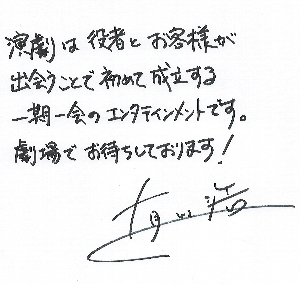 演劇は役者とお客様が
出会うことで初めて成立する
一期一会のエンタテインメントです。
劇場でお待ちしております!